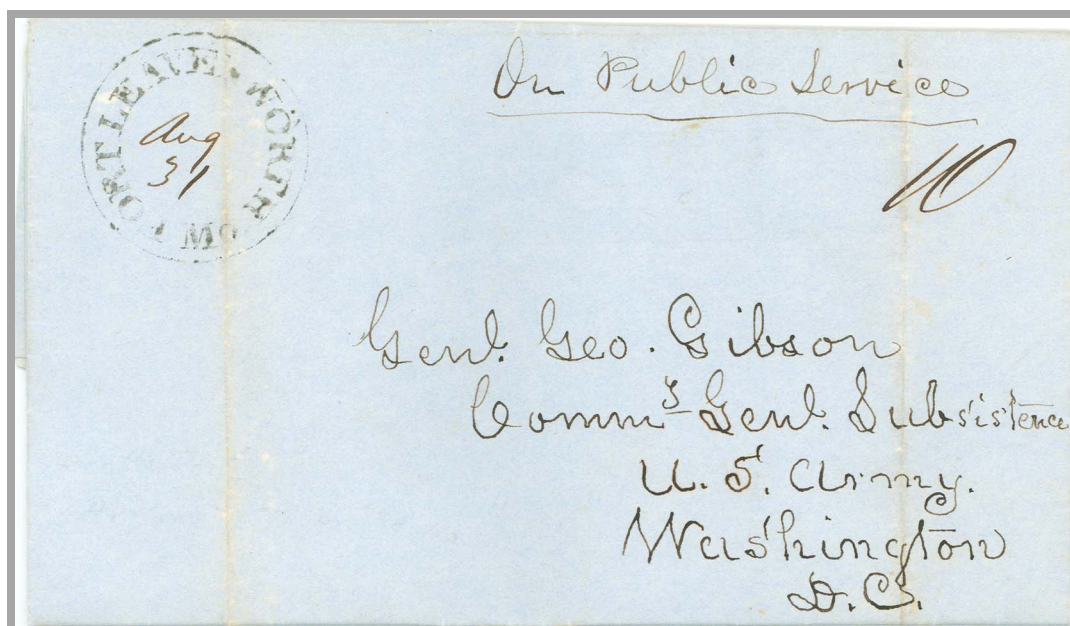 FORT LEAVENWORTH
Aug
31
On Public Service
10
Genl. Geo. Gibson
Comm^y Genl. Subsistence
U. S. Army.
Washington
D.C.